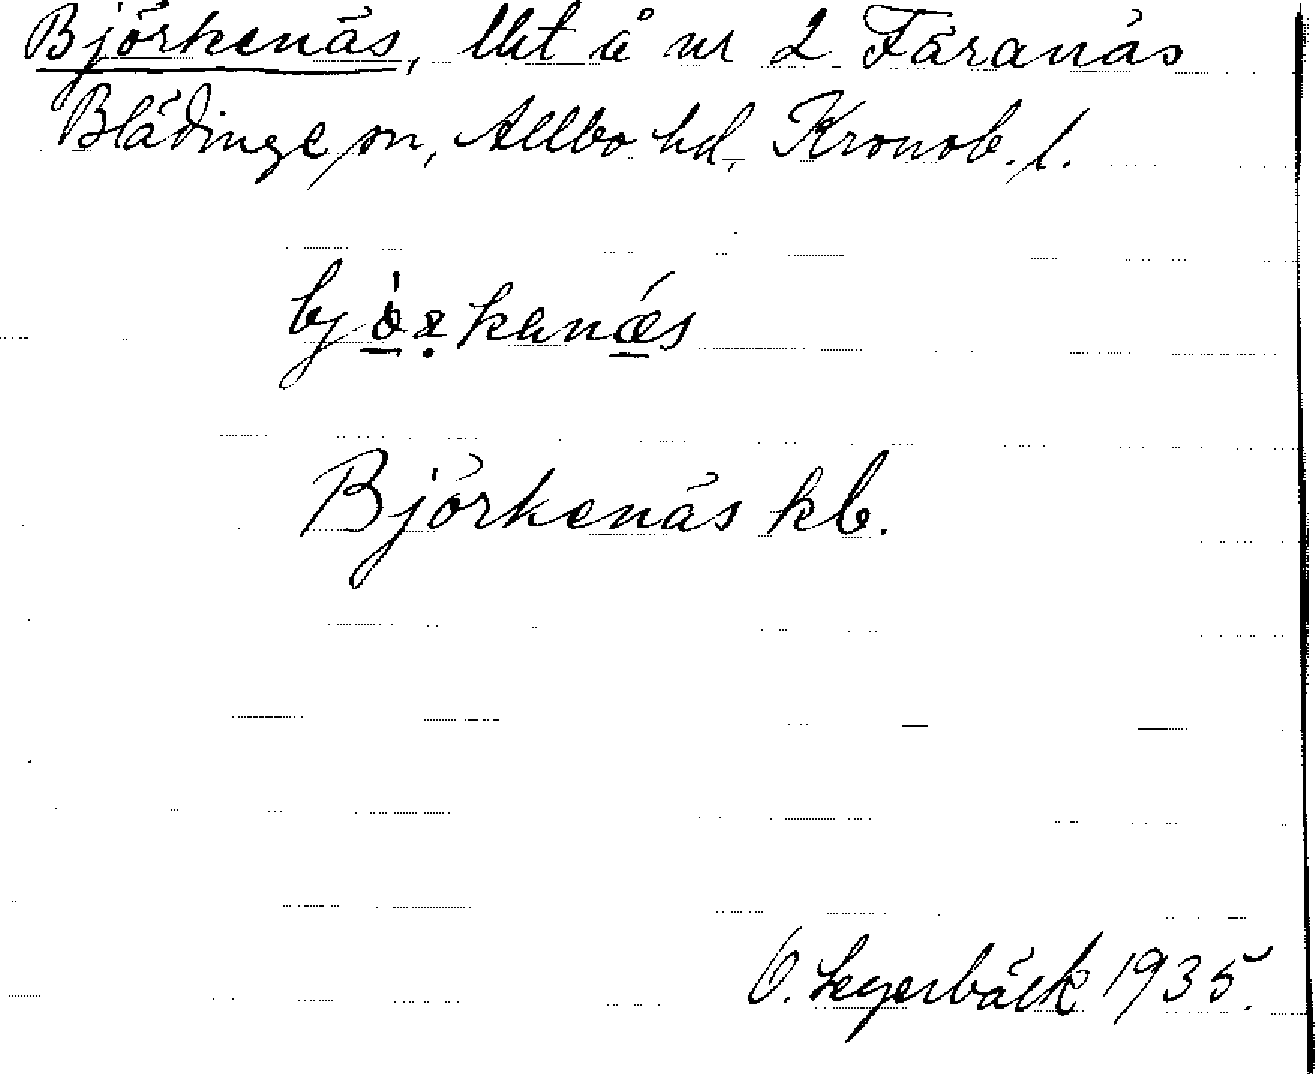 Björkenäs, lht å nr 2 Färanäs
Blädinge sn, Allbo hd, Kronob. l.
Björkenäs kb.
O. Legerbäck 1935.